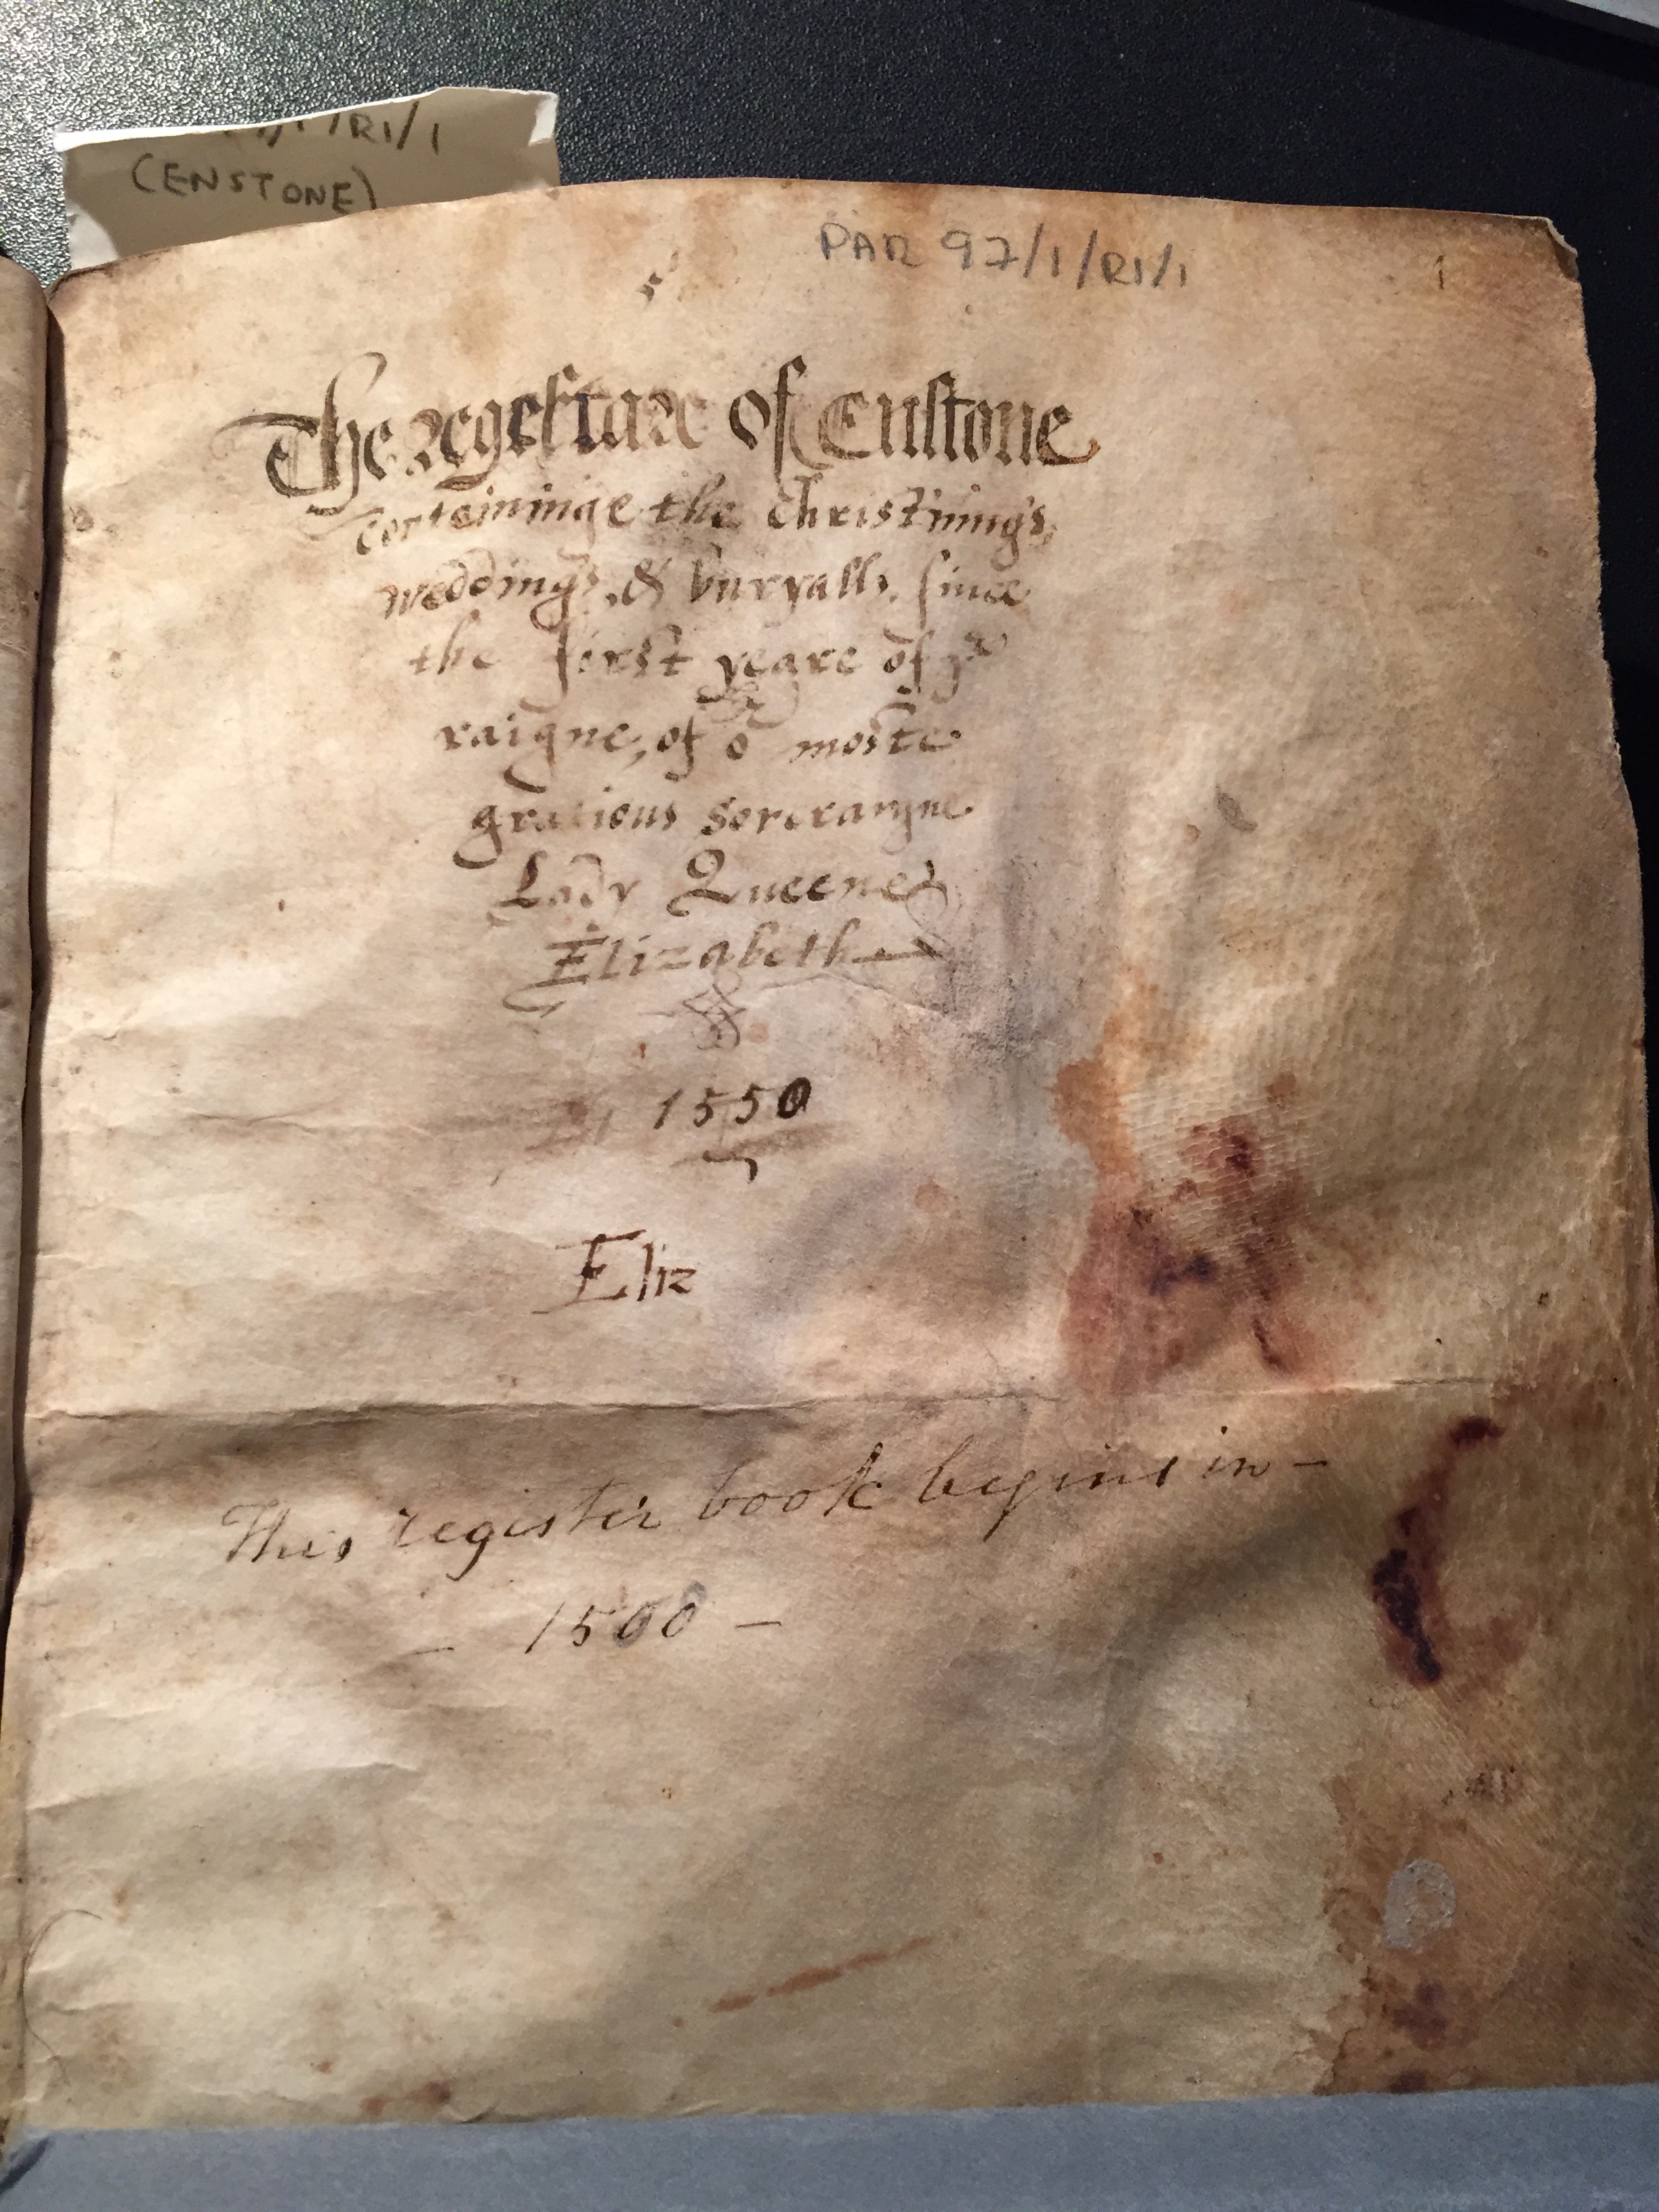 /R1/1
(ENSTONE)
PAR 97/1/R1/1
1
The regestare of Enstone
conteininge the christnings,
weddings, & buryalls, since
the first yeare of ye
raigne, of or moste
gratious soveraigne
Lady Queene
Elizabeth
1550
Eliz
This register book begins in -
- 1500 -